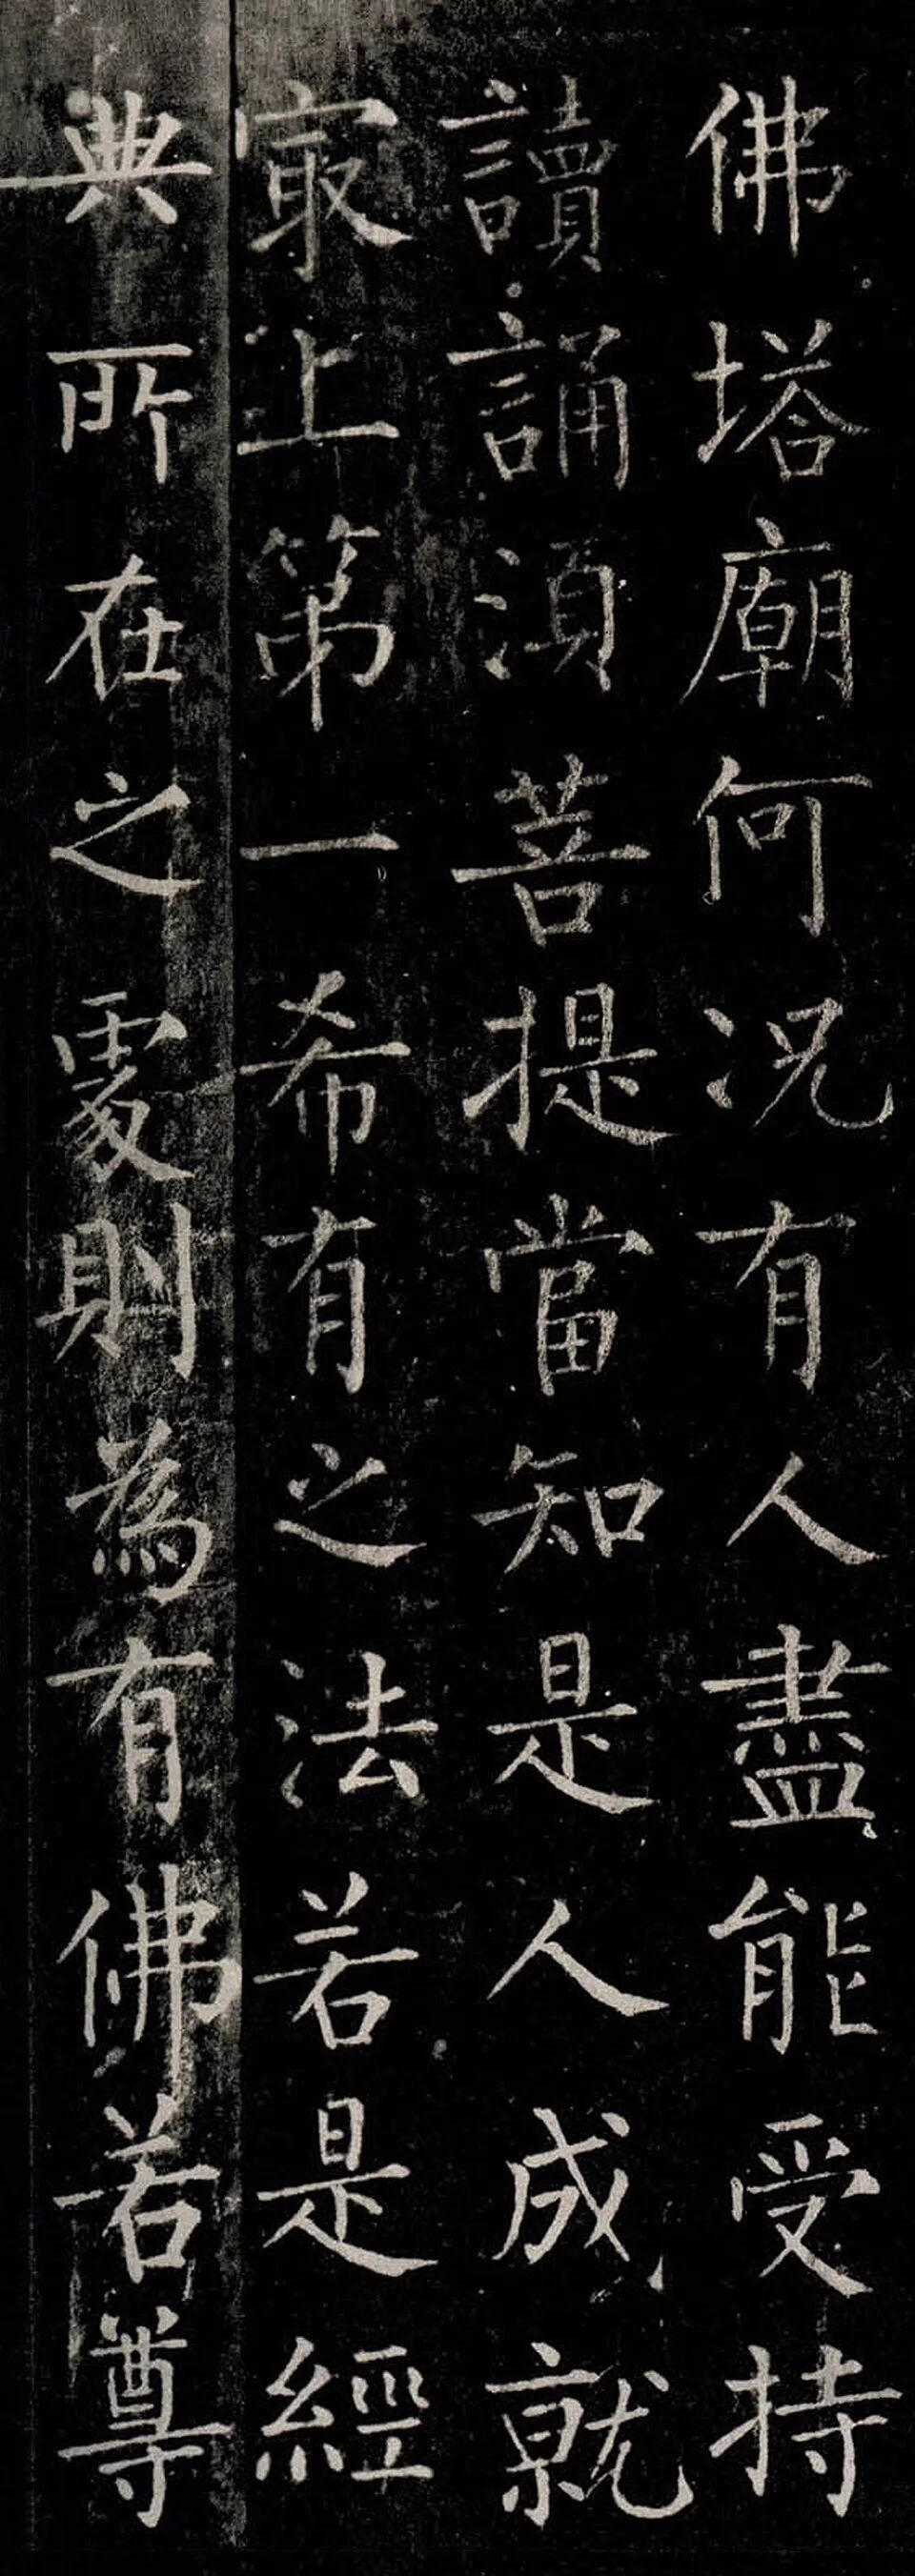 佛塔廟何況有人盡能受持
讀誦湏菩提當知是人成就
㝡上第一希有之法若是經
典所在之處則為有佛若尊